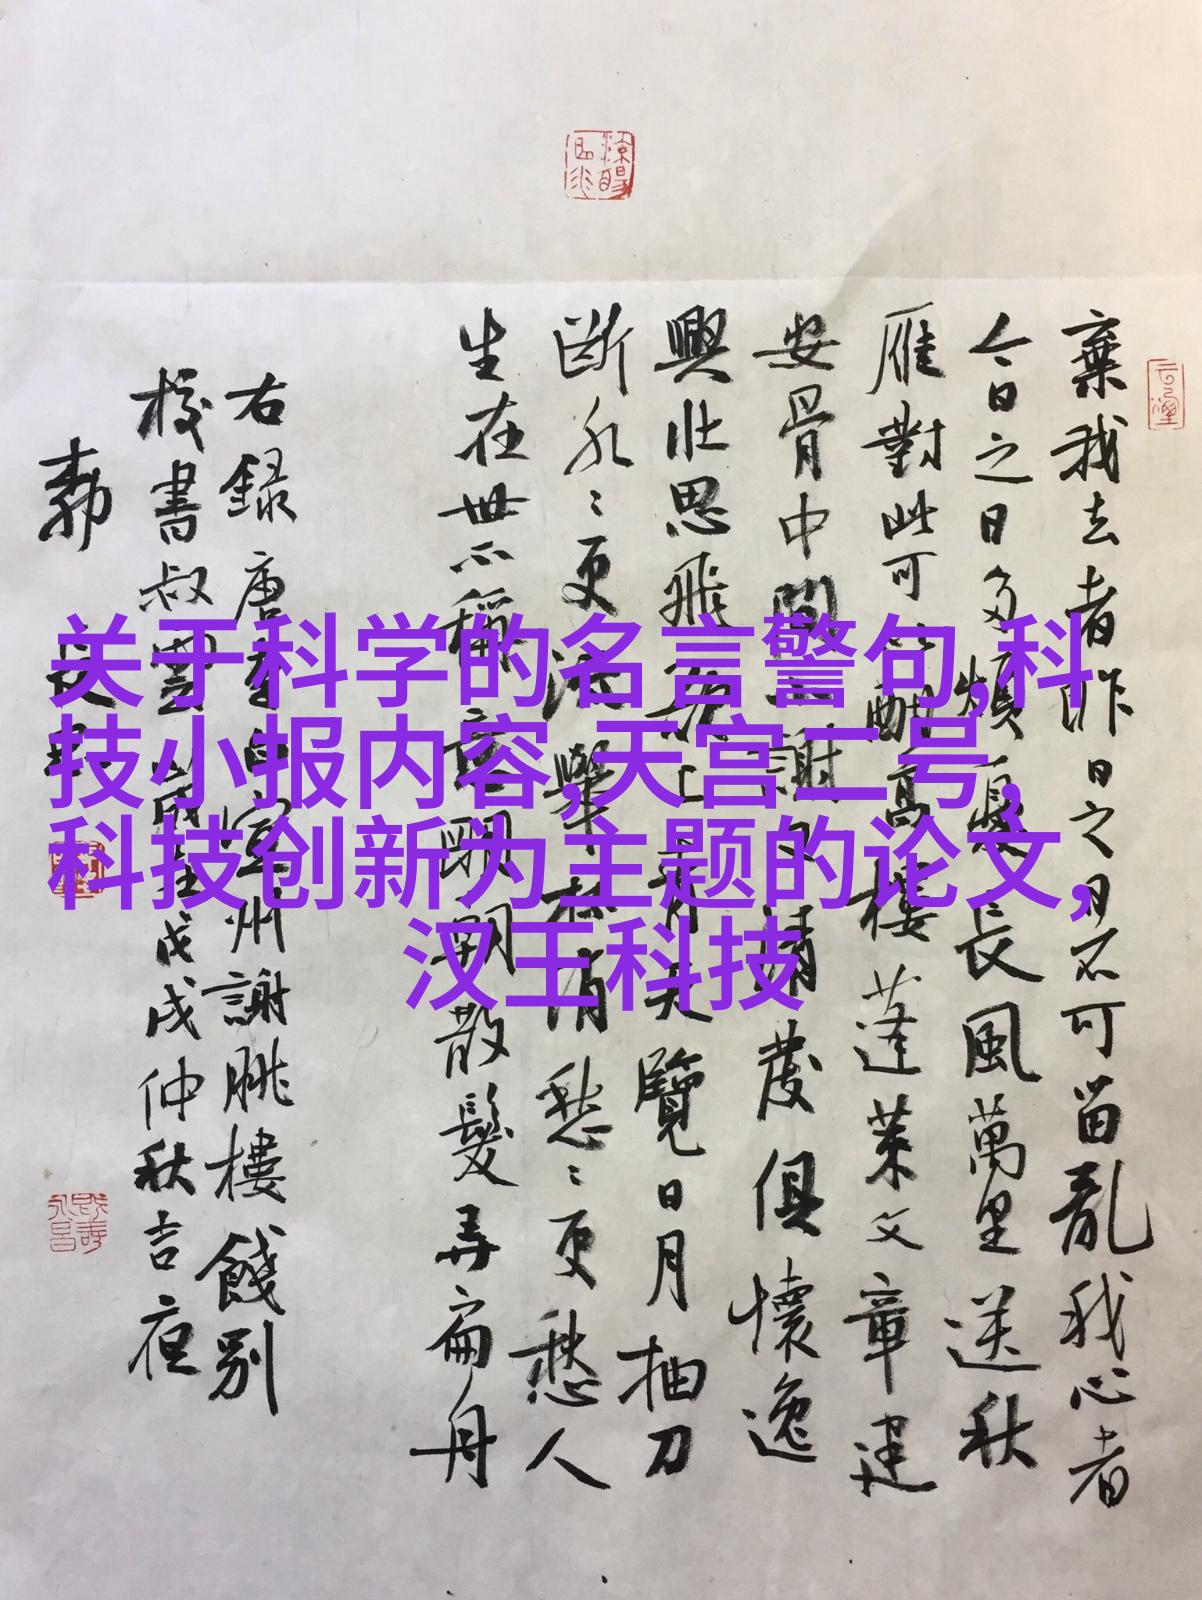 关于科学的名言警句,科
技小报内容,天宫二号,
科技创新为主题的论文,
汉王科技
棄我去者昨日之日不可留亂我心者
今日之日多煩憂長風萬里送秋
雁對此可以酣高樓蓬萊文章建
安骨中間小謝又清發俱懷逸
興壯思飛欲上青天覽日月抽刀
斷水〻更流舉杯消愁〻更愁人
生在世不稱意明朝散髮弄扁舟
右録唐李白宣州謝朓樓餞別
校書叔雲歲在戊戌仲秋吉夜